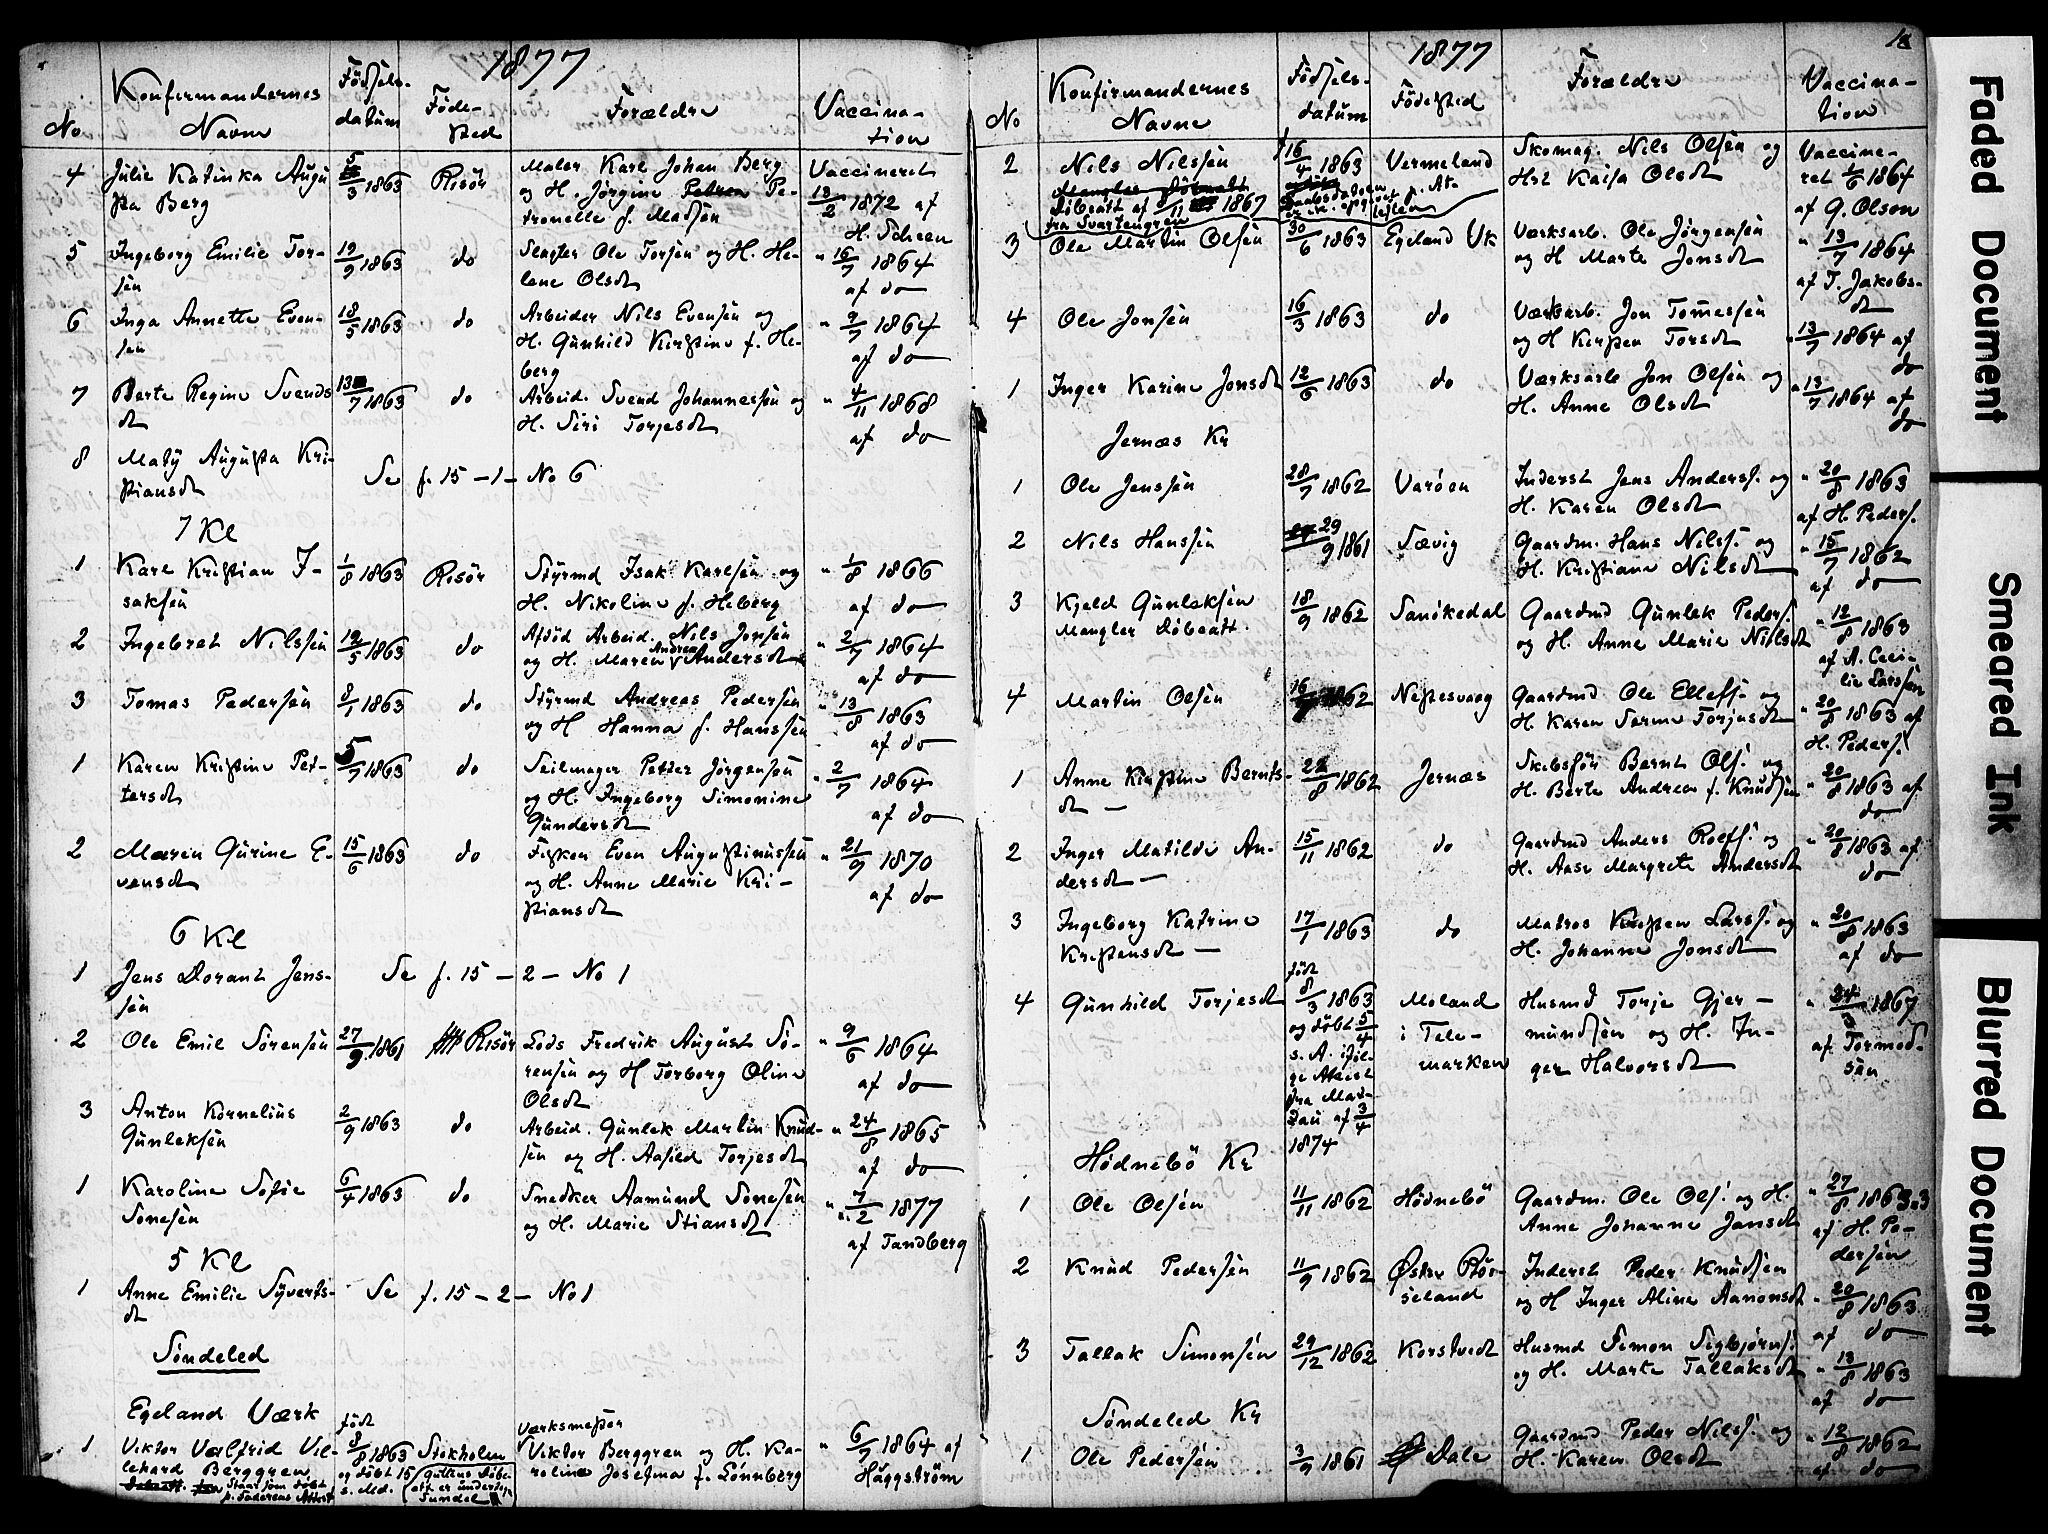 1877
No
Konfirmandernes
Navne
Födsels-
datum
Føde-
sted
Forældre
Vaccina-
tion
4 Julie Katinka Augu-
sta Berg
5/3 1863 Risör
Maler Karl Johan Berg
og H. Jørgine Petrea Pe-
tronelle f. Madsen
Vaccineret
13/2 1872 af
H. Scheen
5 Ingeborg Emilie Tor-
sen
19/9 1863 do
Slagter Ole Torsen og H. He-
lene Olsdt
" 16/7 1864
af do
6 Inga Annette Even-
sen
18/5 1863 do
Arbeider Nils Evensen og
H. Gunhild Kirstine f. He-
berg
" 9/7 1864
af do
7 Berte Regine Svends-
dt
13/7 1863 do
Arbeid. Svend Johannessen og
H. Siri Torjesdt
" 4/11 1868
af do
8 Maty Augusta Kri-
stiansdt
Se f. 15 - 1 - No 6
7 Kl
1 Karl Kristian I-
saksen
1/8 1863 Risör
Styrmd Isak Karlsen og
H. Nikoline f. Heberg
" 1/8 1866
af do
2 Ingebret Nilssen
19/5 1863 do
Afdöd Arbeid. Nils Jonsen
og H. Maren Andrea Andersdt
" 2/7 1864
af do
3 Tomas Pedersen
8/1 1863 do
Styrmd Andreas Pedersen
og H Hanna f. Hanssen
" 13/8 1863
af do
1 Karen Kristine Pet-
tersdt
5/7 1863 do
Seilmager Petter Jörgensen
og H. Ingeborg Simonine
Gundersdt
" 2/7 1864
af do
2 Maren Gurine E-
vensdt
15/6 1863 do
Fisker Even Augustinussen
og H. Anne Marie Kri-
stiansdt
" 21/9 1870
af do
6 Kl
1 Jens Dorant Jens-
sen
Se f. 15 - 2 - No 1
2 Ole Emil Sörensen
27/9 1861 Risör
Lods Fredrik August Sö-
rensen og H Torborg Oline
Olsdt
" 9/6 1864
af do
3 Anton Kornelius
Gunleksen
2/9 1863 do
Arbeid. Gunlek Martin Knud-
sen og H. Aasild Torjesdt
" 24/8 1865
af do
1 Karoline Sofie
Sonesen
6/4 1863 do
Snedker Aamund Sonesen
og H. Marie Stiansdt
" 7/2 1877
af Tandberg
5 Kl
1 Anne Emilie Syverts-
dt
Se f. 15 - 2 - No 1
Søndeled
Egeland Værk
1 Viktor Valfrid Vil-
lehard Berggren
født
8/8 1863
og döbt 15
s. Md.
Stokholm
Værksmester
Viktor Berggren og H. Ka-
roline Josefina f. Lönnberg
" 6/7 1864 af
Häggström
1877
18
No
Konfirmandernes
Navne
Födsels-
datum
Födested
Forældre
Vaccina-
tion
2 Nils Nilssen
Döbeatt af 1867
fra Svartengren
16/4 1863 Vermeland
Skomag. Nils Olsen og
Hst Kaisa Olsdt
Vaccine-
ret 1/6 1864
af G. Olson
3 Ole Martin Olsen
30/6 1863 Egeland Vk
Værksarb. Ole Jörgensen
og H Marte Jonsdt
" 13/7 1864
af T. Jakobs-
dt
4 Ole Jonsen
16/3 1863 do
Værksarb. Jon Tomessen
og H Kirsten Torsdt
" 13/7 1864 af
do
1 Inger Karine Jonsdt
12/6 1863 do
Værksarb Jon Olsen og
H. Anne Olsdt
" 13/7 1864 af
do
Jernæs Kr
1 Ole Jenssen
28/7 1862 Varöen
Inderst Jens Anderss. og
H. Karen Olsdt
" 20/8 1863
af H. Peders.
2 Nils Hanssen
29/9 1861 Sævig
Gaardm. Hans Nilss. og
H. Kristiane Nilsdt
" 15/7 1862
af do
3 Kjeld Gunleksen
Mangler Döbeatt.
18/9 1862 Sanökedal
Gaardmd Gunlek Peders.
og H. Anne Marie Nilsdt
" 12/8 1863
af A. Ceci-
lie Larssen
4 Martin Olsen
1862 Nestesvaag
Gaardmd Ole Ellefs. og
H. Karen Serine Torjusdt
" 20/8 1863 af
H. Peders.
1 Anne Kirstine Bernts-
dt
22/8 1862 Jernæs
Skibsför Bernt Ols. og
H. Berte Andrea f. Knudsen
" 20/8 1863 af
do
2 Inger Matilde An-
dersdt
15/11 1862 do
Gaardmd Anders Rolfs. og
H. Aase Margrete Andersdt
" 20/8 1863 af
do
3 Ingeborg Katrine
Kristensdt
17/1 1863 do
Matros Kristen Larss. og
H. Johanne Jonsdt
" 20/8 1863
af do
4 Gunhild Torjesdt
født
8/3 1863
og döbt 5/4
s. A. iföl-
ge Attest
fra Mar-
dau af 3/4
1874
Moland
i Tele-
marken
Husmd Torje Gjer-
mundsen og H. In-
ger Halvorsdt
1867
af Tormod-
sen
Hödnebö Kr
1 Ole Olsen
11/11 1862 Hödnebö
Gaardm. Ole Ols. og H.
Anne Johanne Jansdt
" 27/8 1863
af H. Pe-
dersen
2 Knud Pedersen
11/9 1862 Øster Rör-
seland
Inderst Peder Knudsen
og H Inger Aline Aanonsdt
" 20/8 1863
af do
3 Tallak Simonsen
29/12 1862 Korstvedt
Husmd Simon Sigbjörns.
og H. Marte Tallaksdt
" 13/8 1863
af do
Søndeled Kr
1 Ole Pedersen
3/9 1861 Dale
Gaardmd Peder Nilss. og
H. Karen Olsdt
" 12/8 1862
af do
Faded Document
Smeared Ink
Blurred Document